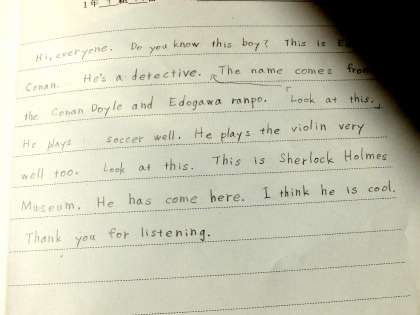 1年
Hi, everyone. Do you know this boy? This is
Conan. He's a detective. The name comes from
the Conan Doyle and Edogawa ranpo. Look at this.
He plays soccer well. He plays the violin very
well too. Look at this. This is Sherlock Holmes
Museum. He has come here. I think he is cool.
Thank you for listening.